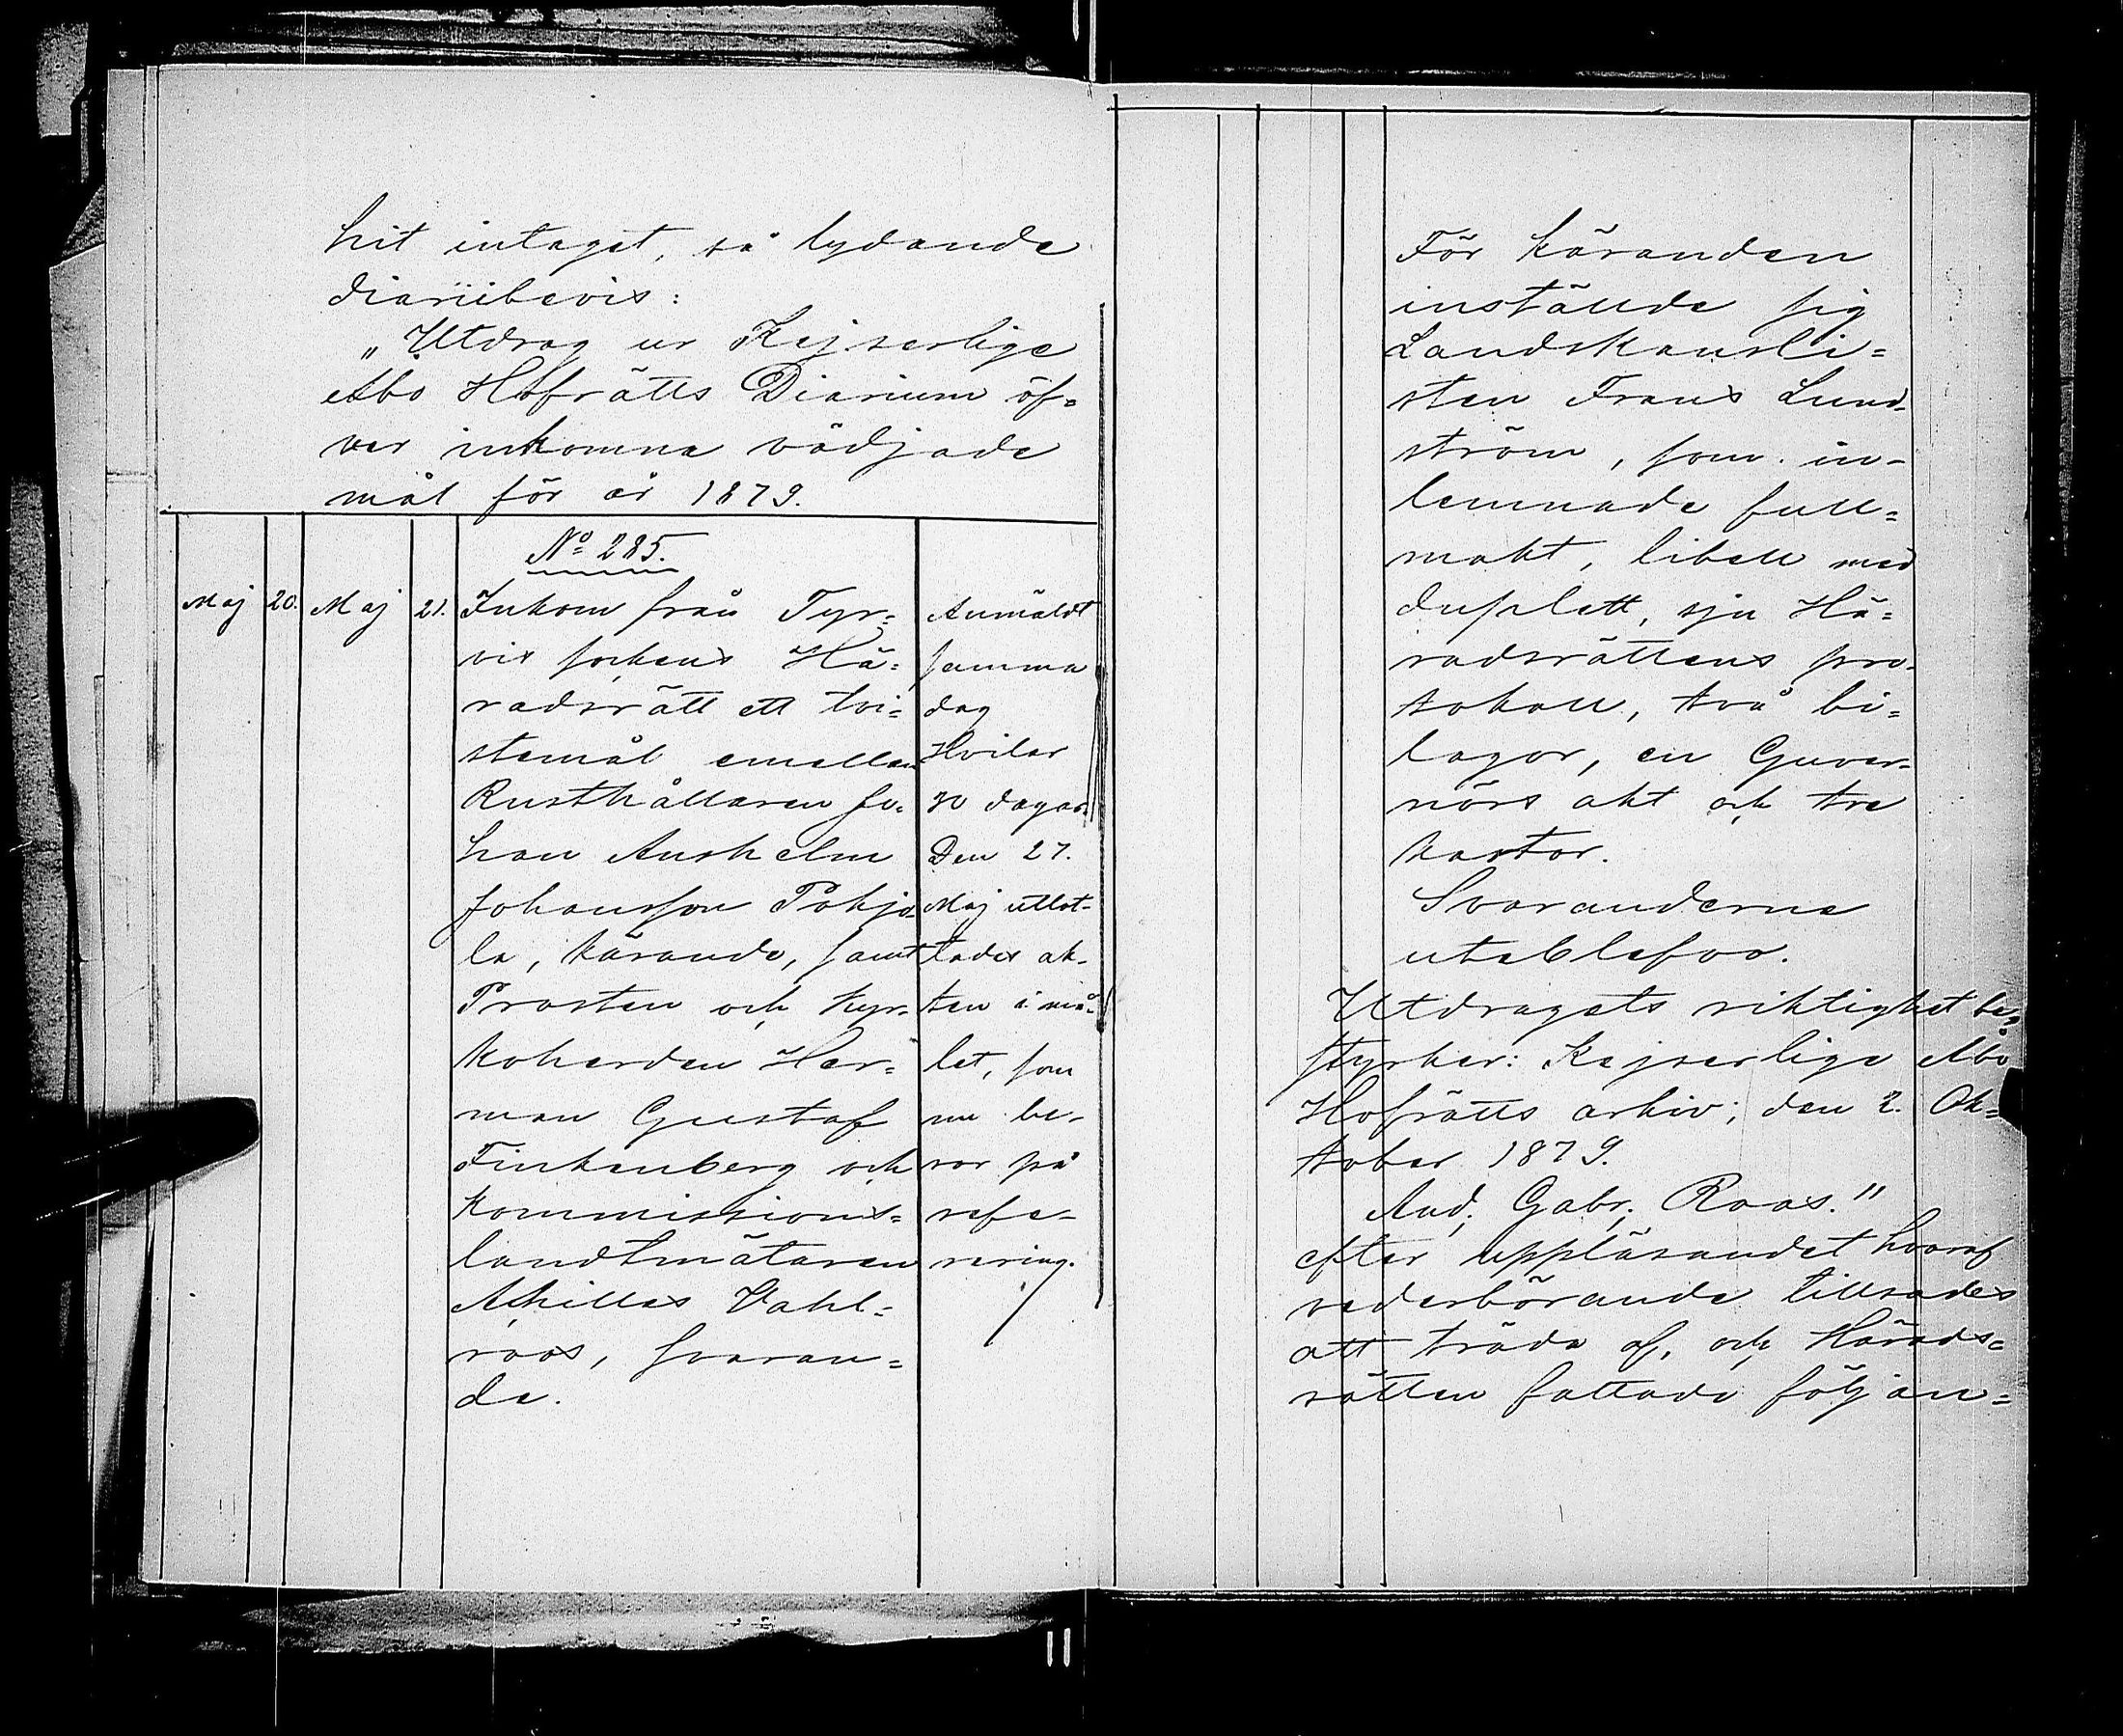 hit intaget, så lydande
diariibevis:
„Utdrag ur Kejserlige
Åbo Hofrätts Diarium öf=
ver inkomne vädjade
mål för år 1879.
No 285.
Maj 20. Maj 21.
Inkom från Tyr=
vis sockens Hä=
radsrätt ett tvi=
stemål emellan
Rusthållaren Jo=
han Anshelm
Johansson Pohjo=
la, kärande, samt
Prosten och Kyr=
koherden Her=
man Gustaf
Finkenberg och
Kommissions=
landtmätaren
Achilles Vahl=
roos, svaran=
de.
Anmäldt
samma
dag
Hvilar
30 dagar.
Den 27.
Maj utlot=
tades ak=
ten i må=
let, som
nu be=
ror på
refe=
rering.
För käranden
inställde sig
Landskansli=
sten Frans Lund=
ström, som in=
lemnade full=
makt, libell med
duplett, sju Hä=
radsrättens pro=
tokoll, två bi=
lagor, en Guver=
nörs akt och tre
kartor.
Svaranderne
uteblefvo.
Utdragets riktighet be=
styrker: Kejserlige Åbo
Hofrätts arkiv; den 2. Ok=
tober 1879.
And. Gabr. Roos."
efter uppläsandet hvaraf
vederbörande tillsades
att träda af, och Härads=
rätten fattade följan=
11